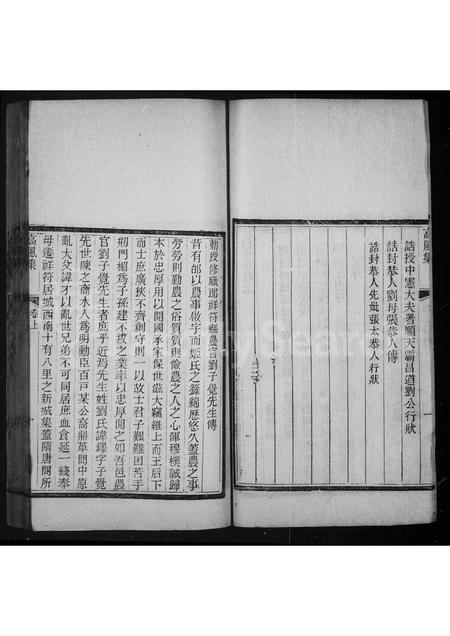 高風集
誥授中憲大夫署順天霸昌道劉公行狀
誥封恭人劉母張恭人傳
誥封恭人先妣張太恭人行狀
一
勅授修職郎祥符縣農官劉子覺先生傳
昔有邰以農事啟宇而姬氏之籙綿歷悠久蓋農之事
勞勞則勤農之俗質質則儉農之人之心渾穆樸誠歸
本於忠厚用以開國承家保世滋大竊維上而王后下
而士庶廣狹不齊創守則一以故士君子艱難困苦于
荊門楣為子孫建不拔之業率以忠厚開之如吾邑農
官劉子覺先生者庶乎近焉先生姓劉氏諱鐸字子覺
先世陳之商水人為明勳臣百戸某公裔鼎草間中原
亂大父諱才以亂世兄弟不可同居庶血食延一綫奉
母遷祥符居城西南十有八里之新城集蓋隋唐間所
高風集
卷上